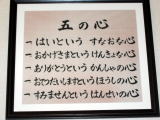 五の心
一 はいという すなおな心
一 おかげさまという けんきょな心
一 ありがとうという かんしゃの心
一 おてつだいしますという ほうしの心
一 すみませんという はんせいの心